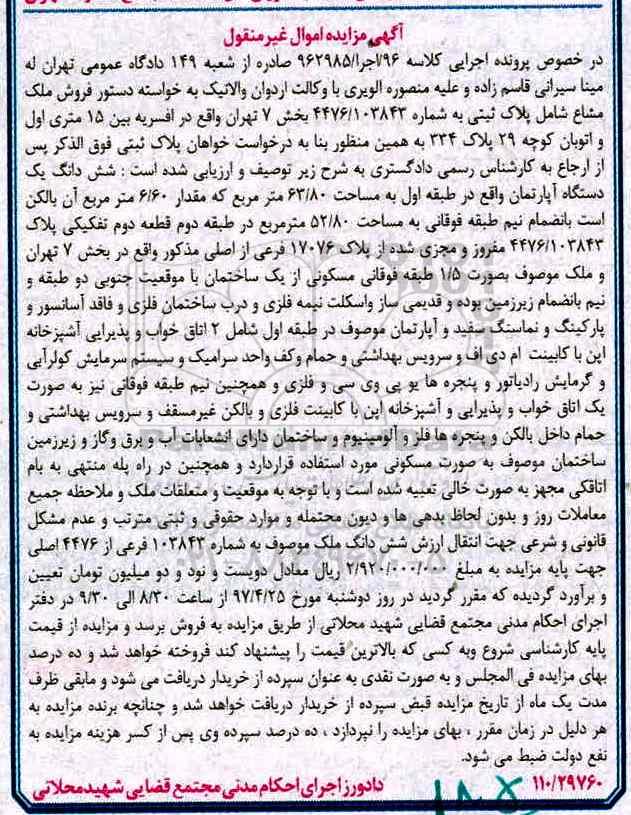 آگهی مزایده اموال غیرمنقول
در خصوص پرونده اجرایی کلاسه ۹۶/اجرا/۹۶۲۹۸۵ صادره از شعبه ۱۴۹ دادگاه عمومی تهران له
مینا سیرانی قاسم زاده و علیه منصوره الویری با وکالت اردوان والاتیک به خواسته دستور فروش ملک
مشاع شامل پلاک ثبتی به شماره ۴۴۷۶/۱۰۳۸۴۳ بخش ۷ تهران واقع در افسریه بین ۱۵ متری اول
و اتوبان کوچه ۲۹ پلاک ۳۳۴ به همین منظور بنا به درخواست خواهان پلاک ثبتی فوق الذکر پس
از ارجاع به کارشناس رسمی دادگستری به شرح زیر توصیف و ارزیابی شده است : شش دانگ یک
دستگاه آپارتمان واقع در طبقه اول به مساحت ۶۳/۸۰ متر مربع که مقدار ۶/۶۰ متر مربع آن بالکن
است بانضمام نیم طبقه فوقانی به مساحت ۵۲/۸۰ مترمربع در طبقه دوم قطعه دوم تفکیکی پلاک
۴۴۷۶/۱۰۳۸۴۳ مفروز و مجزی شده از پلاک ۱۷۰۷۶ فرعی از اصلی مذکور واقع در بخش ۷ تهران
و ملک موصوف بصورت ۱/۵ طبقه فوقانی مسکونی از یک ساختمان با موقعیت جنوبی دو طبقه و
نیم بانضمام زیرزمین بوده و قدیمی ساز واسکلت نیمه فلزی و درب ساختمان فلزی و فاقد آسانسور و
پارکینگ و نماسنگ سفید و آپارتمان موصوف در طبقه اول شامل ۲ اتاق خواب و پذیرایی آشپزخانه
اپن با کابینت ام دی اف و سرویس بهداشتی و حمام وکف واحد سرامیک و سیستم سرمایش کولرآبی
و گرمایش رادیاتور و پنجره ها یو پی وی سی و فلزی و همچنین نیم طبقه فوقانی نیز به صورت
یک اتاق خواب و پذیرایی و آشپزخانه اپن با کابینت فلزی و بالکن غیرمسقف و سرویس بهداشتی و
حمام داخل بالکن و پنجره ها فلز و آلومینیوم و ساختمان دارای انشعابات آب و برق وگاز و زیرزمین
ساختمان موصوف به صورت مسکونی مورد استفاده قراردارد و همچنین در راه پله منتهی به بام
اتاقکی مجهز به صورت خالی تعبیه شده است و با توجه به موقعیت و متعلقات ملک و ملاحظه جمیع
معاملات روز و بدون لحاظ بدهی ها و دیون محتمله و موارد حقوقی و ثبتی مترتب و عدم مشکل
قانونی و شرعی جهت انتقال ارزش شش دانگ ملک موصوف به شماره ۱۰۳۸۴۳ فرعی از ۴۴۷۶ اصلی
جهت پایه مزایده به مبلغ ۲/۹۲۰/۰۰۰/۰۰۰ ریال معادل دویست و نود و دو میلیون تومان تعیین
و برآورد گردیده که مقرر گردید در روز دوشنبه مورخ ۹۷/۴/۲۵ از ساعت ۸/۳۰ الی ۹/۳۰ در دفتر
اجرای احکام مدنی مجتمع قضایی شهید محلاتی از طریق مزایده به فروش برسد و مزایده از قیمت
پایه کارشناسی شروع وبه کسی که بالاترین قیمت را پیشنهاد کند فروخته خواهد شد و ده درصد
بهای مزایده فی المجلس و به صورت نقدی به عنوان سپرده از خریدار دریافت می شود و مابقی ظرف
مدت یک ماه از تاریخ مزایده قبض سپرده از خریدار دریافت خواهد شد و چنانچه برنده مزایده به
هر دلیل در زمان مقرر ، بهای مزایده را نپردازد ، ده درصد سپرده وی پس از کسر هزینه مزایده به
نفع دولت ضبط می شود.
۱۱۰/۲۹۷۶۰ دادورز اجرای احکام مدنی مجتمع قضایی شهید محلاتی